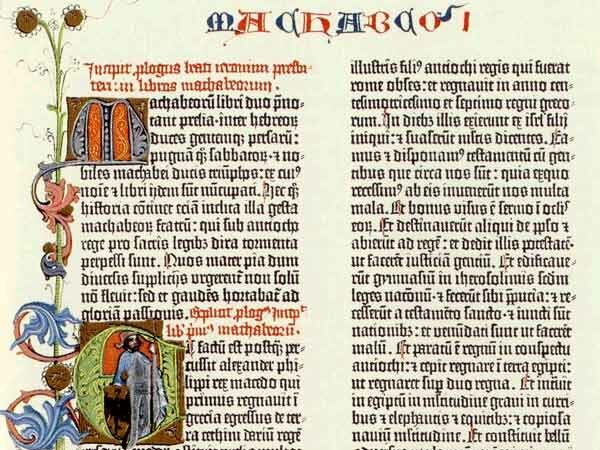 MACHABEOꝜ I
Incipit ꝓlogus beati ieronimi presbi-
teri in libros machabeorum.
Machabeorum libri duo p̄no-
tant prelia · inter hebreoꝝ
duces gentemqꝫ persarū:
pugnam qꝫ sabbatoꝝ · ⁊ no-
biles machabei ducis triūphos: ex cuiꝰ
noīe ⁊ libri ijdem sūt nūcupati. Hec qꝫ
historia cōtinet eciā inclita illa gesta
machabeoꝝ fratrū: qui sub antiocho
rege pro sacris legibꝫ dira tormenta
perpessi sunt. Quos mater pia dum
diversis supplicijs urgerent̄ non solū
nō flevit: sed et gaudēs hortabat̄ ad
gloriam passionis. Explicit ꝓlogꝰ Incipit
lib̄ primꝰ machabeorū.
Et factū est postqꝫ per-
cussit alexander phi-
lippi rex macedo qui
primus regnavit ī
grecia egressus de ter-
ra cethim dariū regē
illustris filiꝰ antiochi regis qui fuerat
rome obses: et regnavit in anno cen-
tesimotricesimo et septimo regni greco-
rum. In diebꝫ illis exierunt ex isrl̄ filij
iniqui: ⁊ suaserūt multis dicentes. Ea-
mus ⁊ disponamꝰ testamentū cū gen-
tibus que circa nos sūt: quia ex quo
recessimꝰ ab eis invenerūt nos multa
mala. Et bonus visus ē sermo ī oclis
eoꝝ. Et destinaverūt aliqui de ppl̄o ⁊
abierūt ad regē: et dedit illis potestatē
ut facerēt iusticiā gentiū. Et edificave-
rūt gymnasiū in iherosolimis secundū
leges nationū: ⁊ fecerūt sibi p̄pucia: ⁊ re-
cesserūt a testamēto sancto · ⁊ iuncti sūt
nationibꝫ: et venundati sunt ut facerēt
malū. Et paratū ē regnū in conspectu
antiochi: ⁊ cepit regnare ī terra egipti:
ut regnaret sup duo regna. Et intravit
in egiptū in multitudine gravi in curri-
bus ⁊ elephantis ⁊ equitibꝫ: ⁊ copiosa
navium multitudine. Et constituit bellū